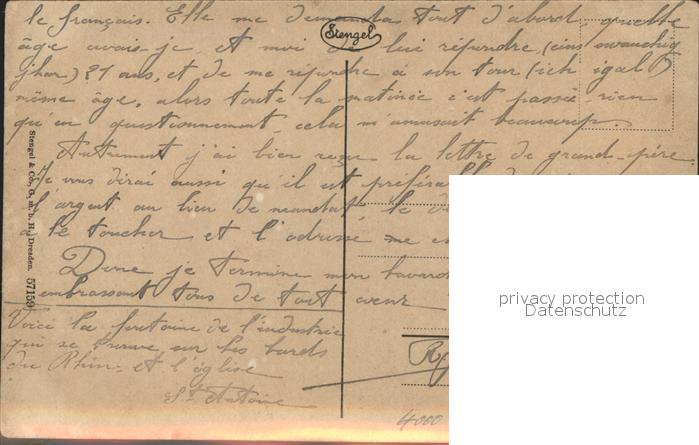 le français. Elle me demanda tout d'abord quelle
âge avais-je et moi de lui répondre (eins
jhar) 21 ans, et de me répondre à son tour (ich igal)
même âge, alors toute la matinée c'est passée rien
qu'en questionnement, cela m'amusait beaucoup.
Autrement j'ai bien reçu la lettre de grand-père.
Je vous dirai aussi qu'il est préférable
l'argent au lieu de mandat le
à le toucher et l'adresse me
Donc je termine mon bavard
embrassant tous de tout coeur
Voici la fontaine de l'industrie
qui se trouve sur les bords
du Rhin et l'église
St Antoine
Stengel
Stengel & Co., G. m. b. H., Dresden. 57159
4000
privacy protection
Datenschutz